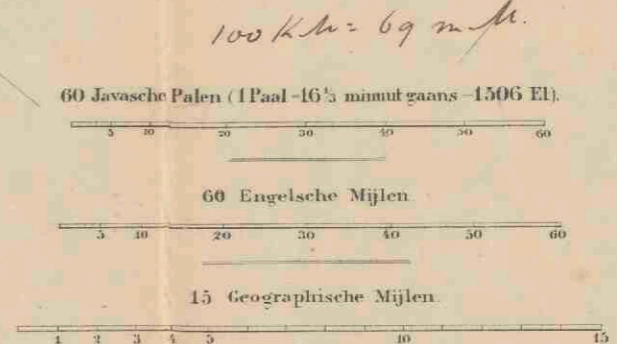 100 KM = 69 m M.
60 Javasche Palen (1 Paal = 16⅓ minuut gaans = 1506 El).
5 10 20 30 40 50 60
60 Engelsche Mijlen
5 10 20 30 40 50 60
15 Geographische Mijlen
1 2 3 4 5 10 15